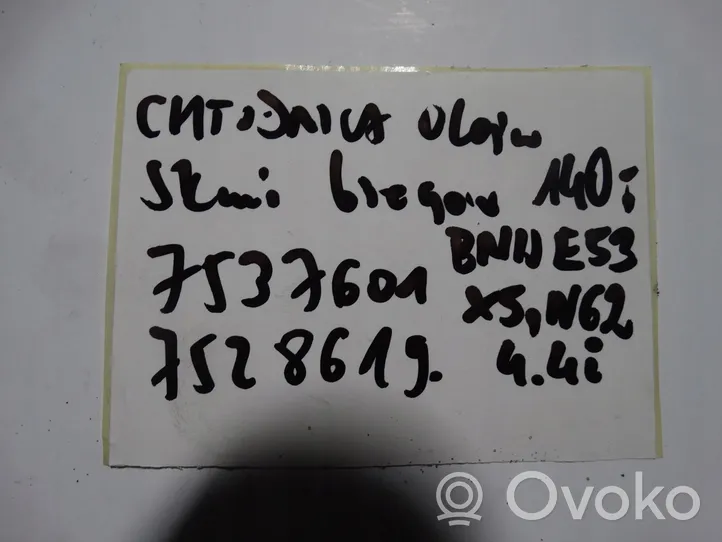 CHŁODNICA Oleju
Skrzyni biegów 140i
7537601 BMW E53
X5, N62
7528619. 4.4i
Ovoko